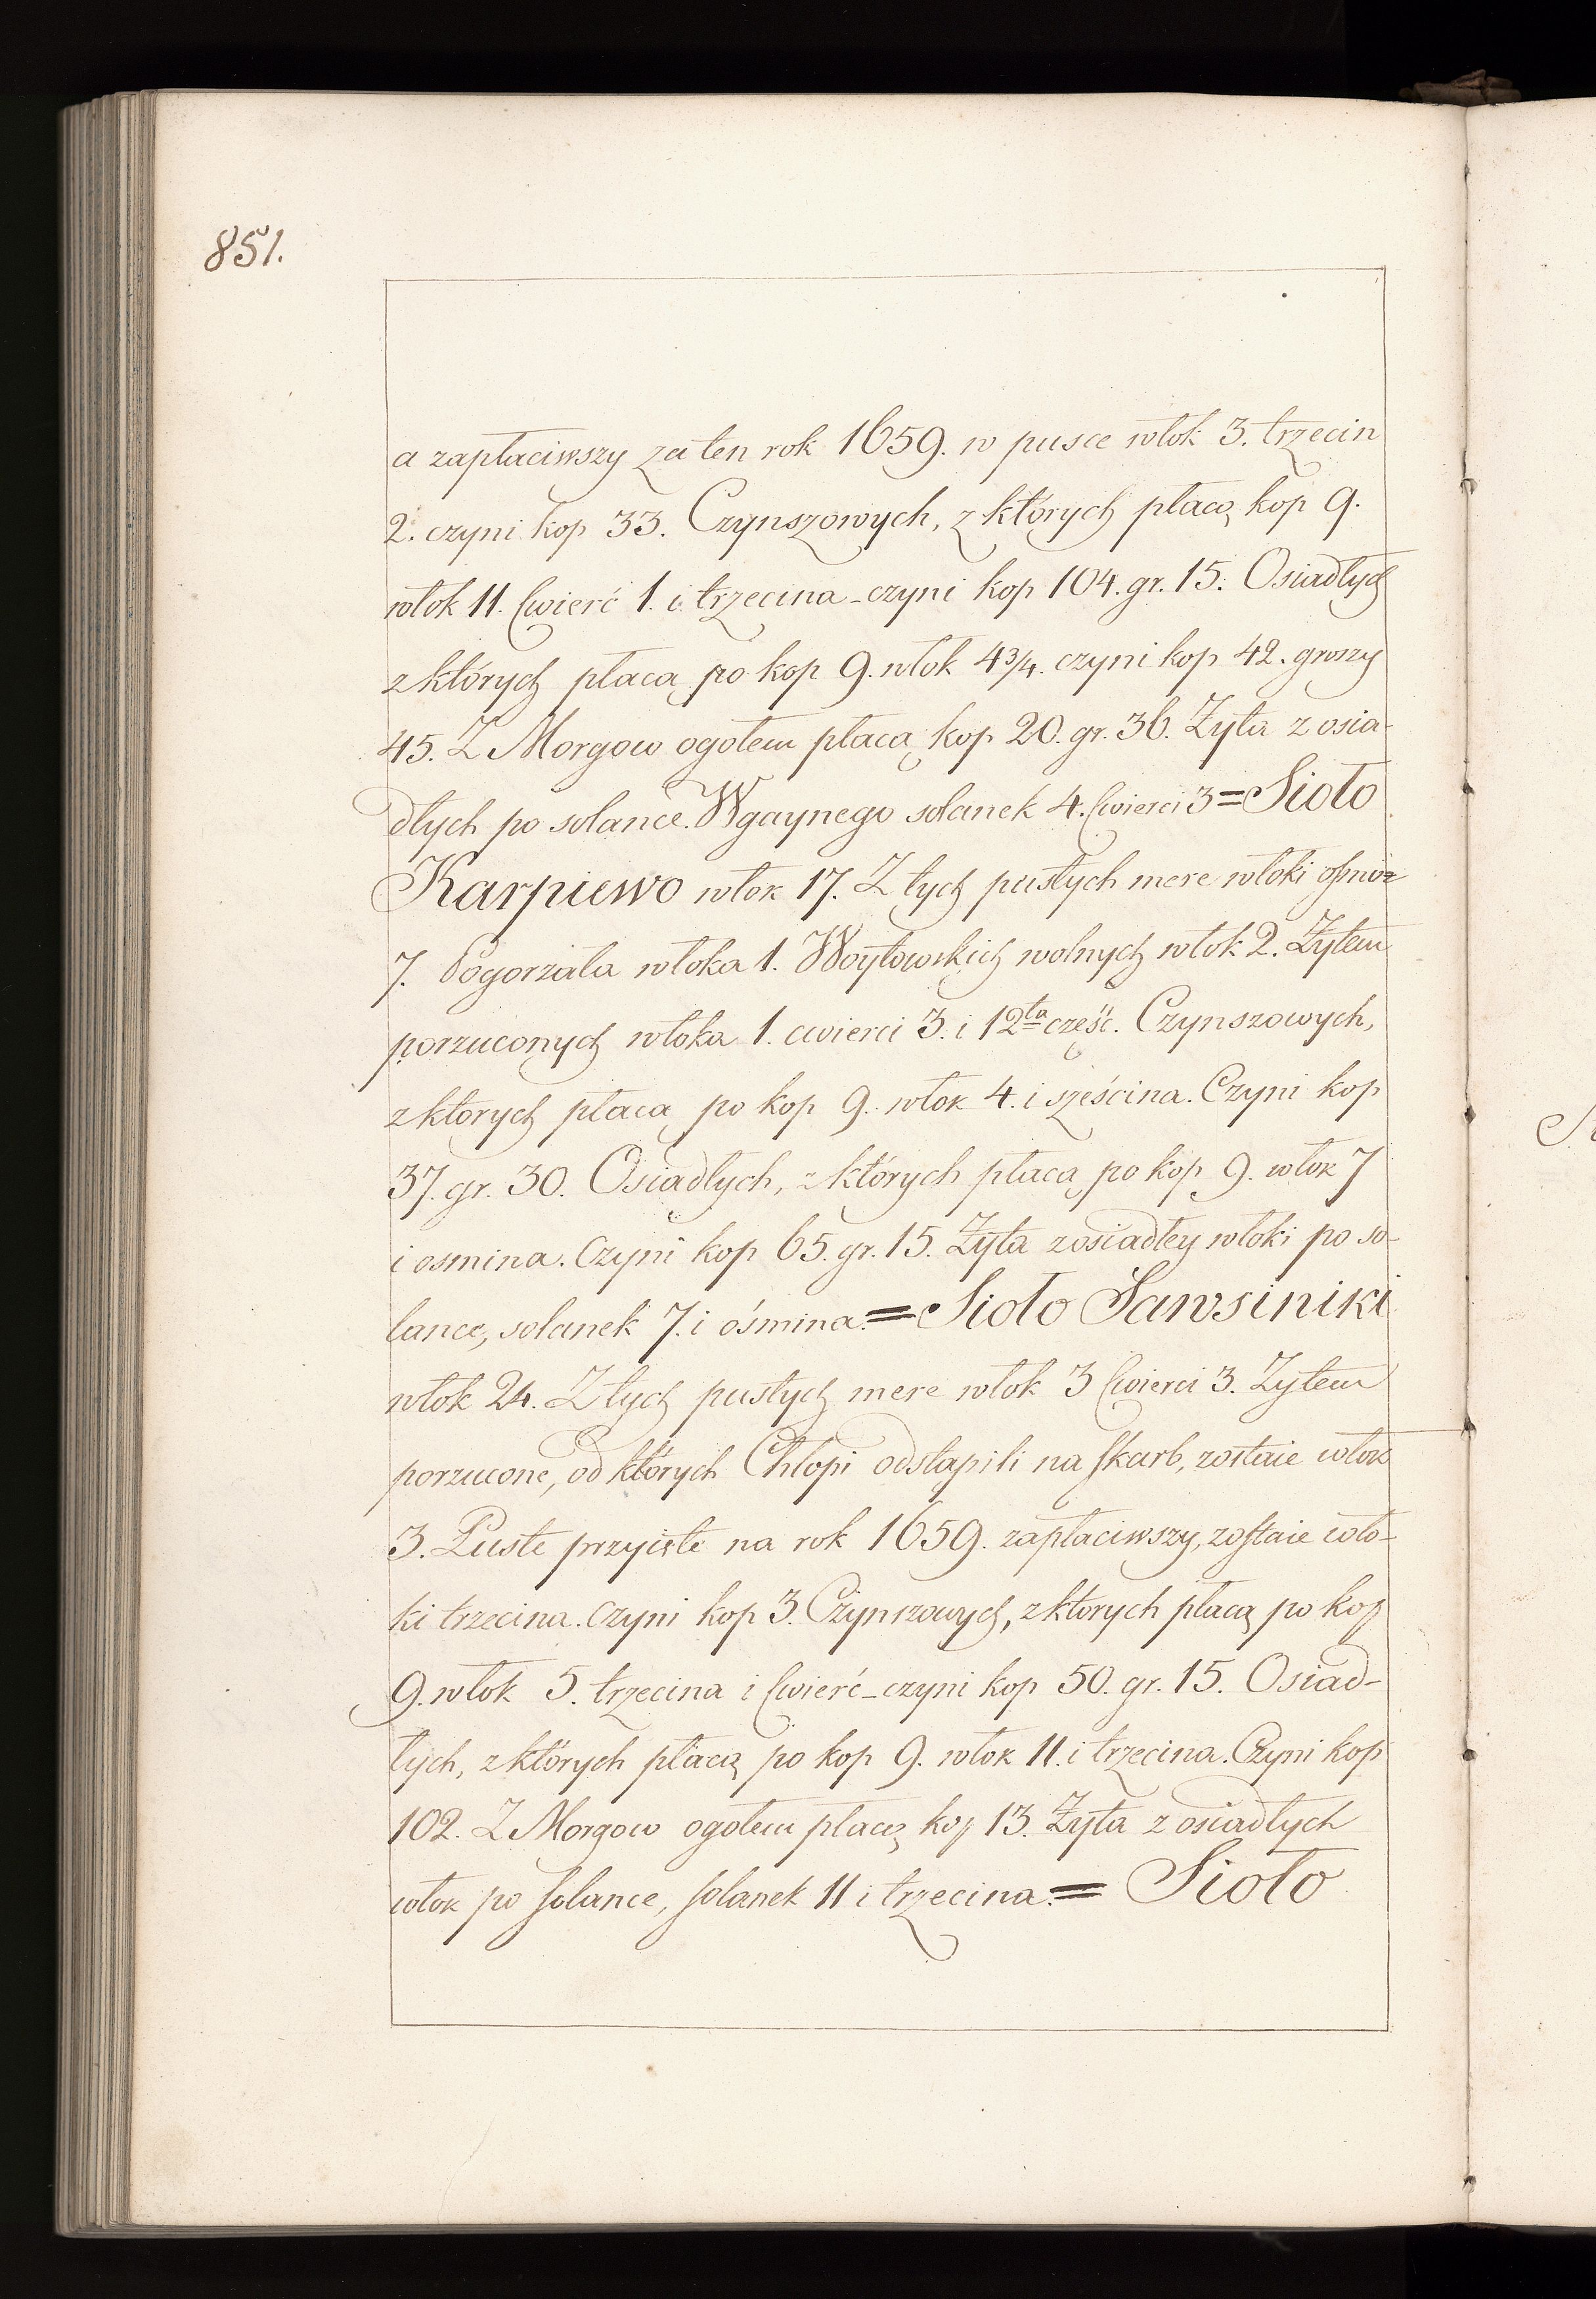 851.
a zapłaciwszy za ten rok 1659. w pusce włok 3. trzecin
2. czyni kop 33. Czynszowych, z których płacą kop 9.
włok 11. Cwierć 1. i trzecina - czyni kop 104. gr. 15. Osiadłych
z których płacą po kop 9. włok 4 3/4. czyni kop 42. groszy
45. Z Morgow ogołem płacą kop 20. gr. 36. Zyta z osia-
dłych po solance. Wgaynego solanek 4. Cwierci 3 = Sioło
Karpiewo włok 17. Z tych pustych mere włoki
7. Pogorzała włoka 1. Woytowskich wolnych włok 2. Zytem
porzuconych włoka 1. cwierci 3. i 12ta część. Czynszowych,
z ktorych płacą po kop 9. włok 4. i sześcina. Czyni kop
37. gr. 30. Osiadłych, z których płacą po kop 9. włok 7
i osmina. Czyni kop 65. gr. 15. Zyta z osiadłey włoki po so-
lance, solanek 7. i ośmina. = Sioło Sawsiniki
włok 24. Z tych pustych mere włok 3 Cwierci 3. Zytem
porzucone, od których Chłopi odstąpili na skarb, zostaie włok
3. Puste przyięte na rok 1659. zapłaciwszy, zostaie wło-
ki trzecina. czyni kop 3. Czynszowych, z ktorych płacą po kop
9. włok 5. trzecina i Cwierć - czyni kop 50. gr. 15. Osiad-
łych, z których płacą po kop 9. włok 11. i trzecina. Czyni kop
102. Z Morgow ogołem płacą kop 13. Zyta z osiadłych
włok po solance, solanek 11 i trzecina. = Sioło